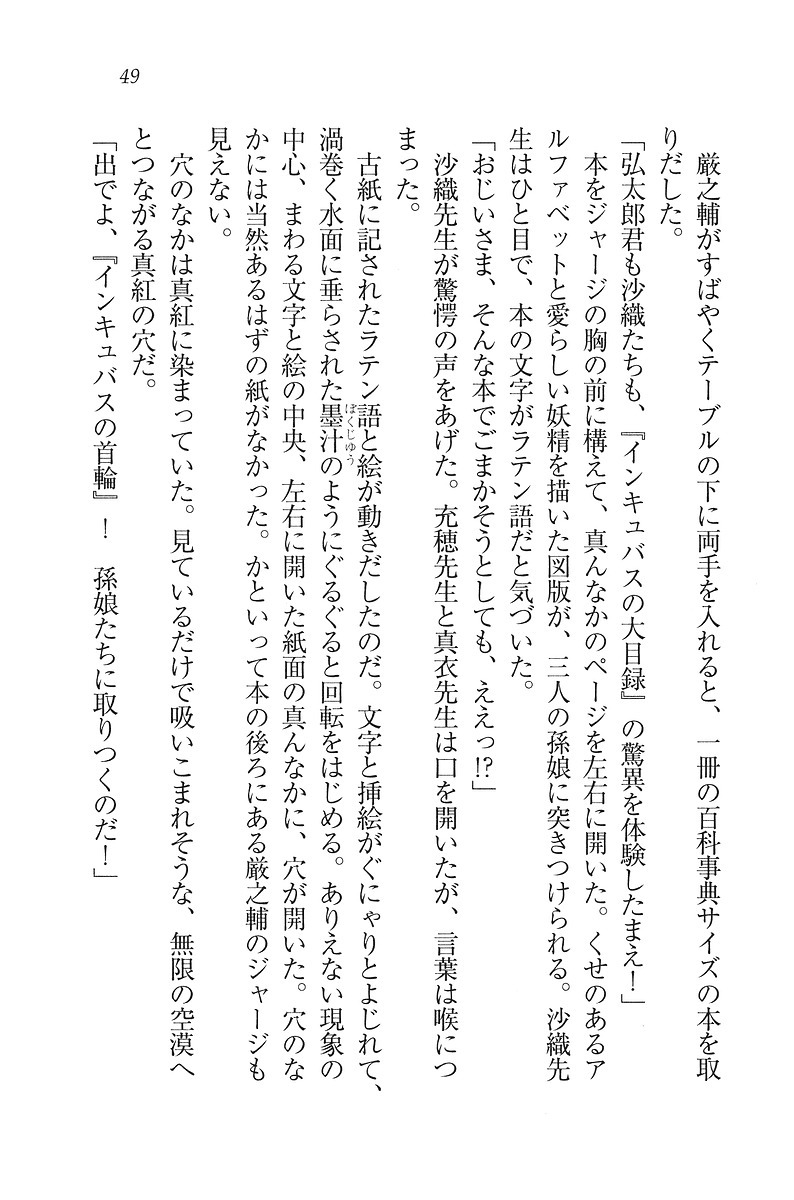 49
厳之輔がすばやくテーブルの下に両手を入れると、一冊の百科事典サイズの本を取
りだした。
「弘太郎君も沙織たちも、『インキュバスの大目録』の驚異を体験したまえ！」
本をジャージの胸の前に構えて、真んなかのページを左右に開いた。くせのあるア
ルファベットと愛らしい妖精を描いた図版が、三人の孫娘に突きつけられる。沙織先
生はひと目で、本の文字がラテン語だと気づいた。
「おじいさま、そんな本でごまかそうとしても、ええっ!?」
沙織先生が驚愕の声をあげた。充穂先生と真衣先生は口を開いたが、言葉は喉につ
まった。
古紙に記されたラテン語と絵が動きだしたのだ。文字と挿絵がぐにゃりとよじれて、
渦巻く水面に垂らされた墨汁のようにぐるぐると回転をはじめる。ありえない現象の
ぼくじゅう
中心、まわる文字と絵の中央、左右に開いた紙面の真んなかに、穴が開いた。穴のな
かには当然あるはずの紙がなかった。かといって本の後ろにある厳之輔のジャージも
見えない。
穴のなかは真紅に染まっていた。見ているだけで吸いこまれそうな、無限の空漠へ
とつながる真紅の穴だ。
「出でよ、『インキュバスの首輪』！　孫娘たちに取りつくのだ！」